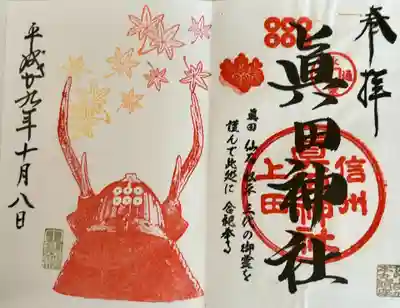 奉拝
眞田神社
信州
眞田神社
上田
眞田 仙石 松平 三代の御霊を
謹んで此処に
平成廿九年十月八日